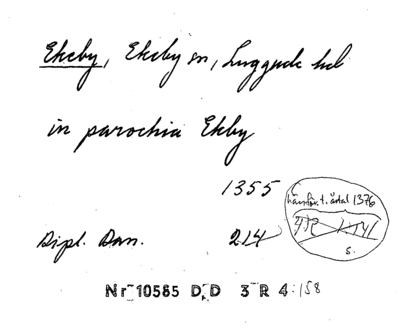 Ekeby, Ekeby sn, Luggude hd
in parochia Ekby
1355
hänför. t. årtal 1376
Dipl. Dan.
214
s.
Nr 10585 D D 3 R 4:158